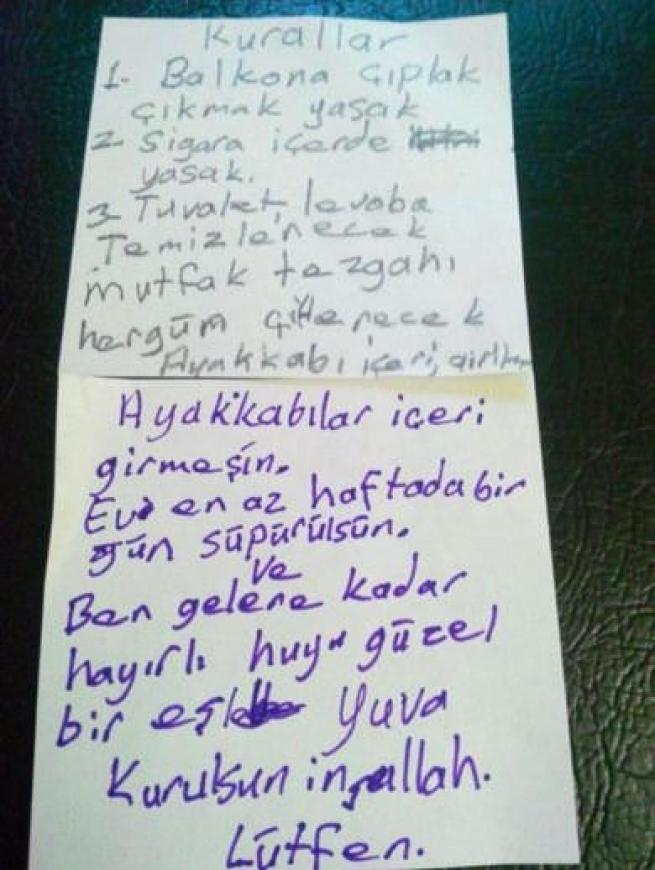 Kurallar
1- Balkona çıplak
çıkmak yasak
2- Sigara içerde
yasak.
3- Tuvalet, lavoba
Temizlenecek
mutfak tezgahı
hergün
Ayakkabı içeri
Ayakkabılar içeri
girmesin.
Ev en az haftada bir
gün süpürülsün.
ve
Ben gelene kadar
hayırlı huyu güzel
bir eşle Yuva
Kurulsun inşallah.
Lütfen.